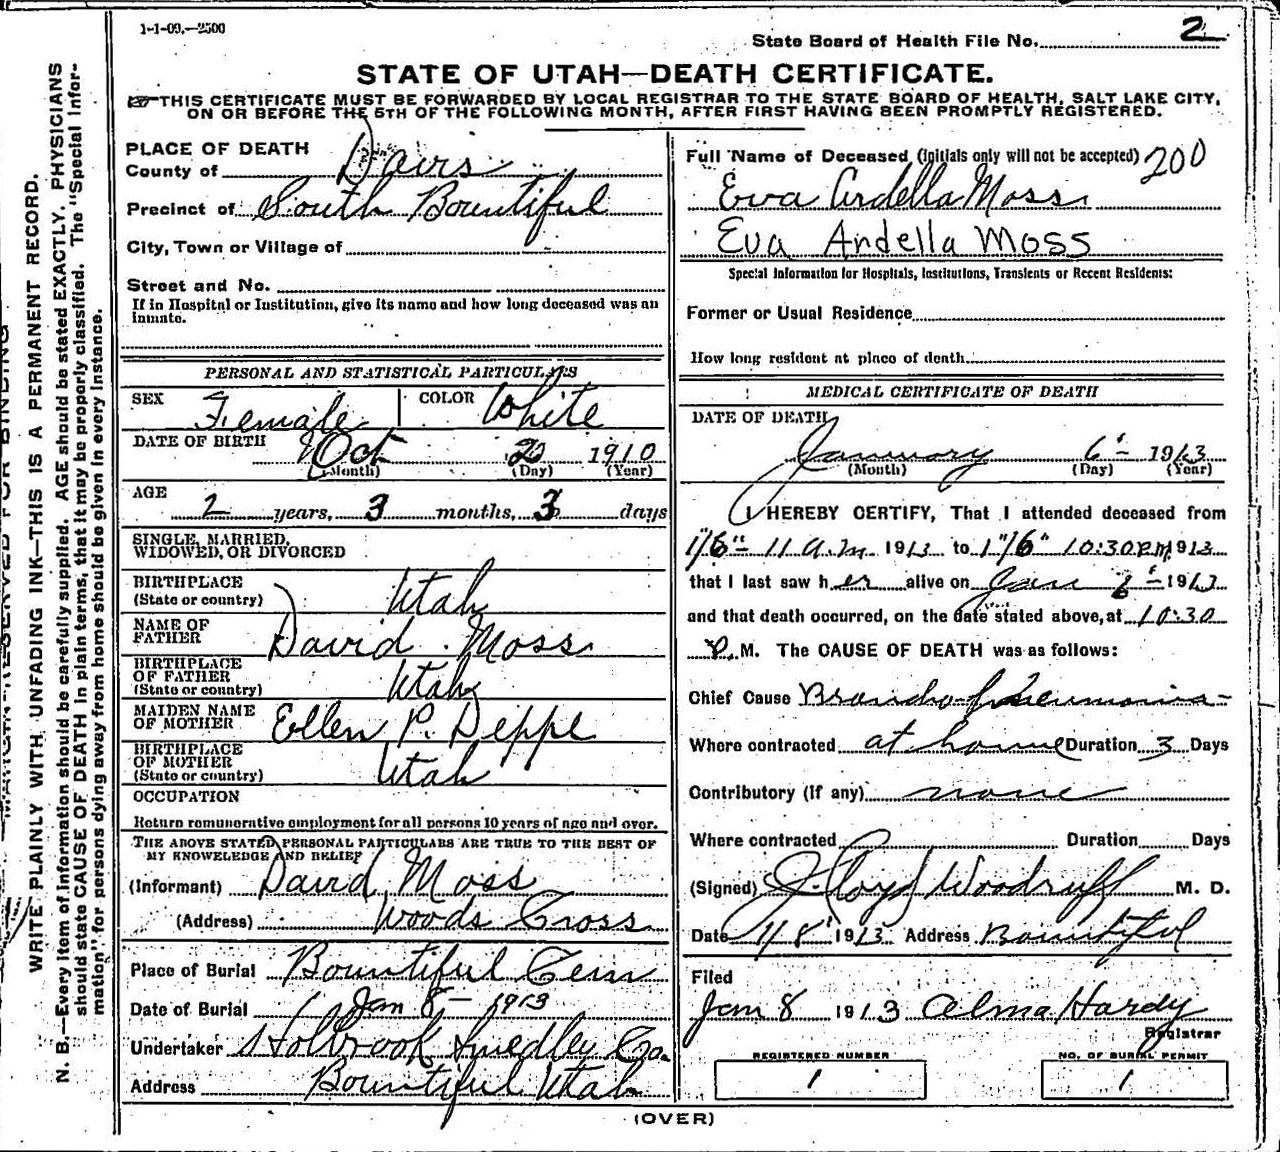 1-1-09.—2500
State Board of Health File No. 2
STATE OF UTAH—DEATH CERTIFICATE.
THIS CERTIFICATE MUST BE FORWARDED BY LOCAL REGISTRAR TO THE STATE BOARD OF HEALTH, SALT LAKE CITY,
ON OR BEFORE THE 5TH OF THE FOLLOWING MONTH, AFTER FIRST HAVING BEEN PROMPTLY REGISTERED.
WRITE PLAINLY WITH UNFADING INK—THIS IS A PERMANENT RECORD.
N. B.—Every item of information should be carefully supplied. AGE should be stated EXACTLY. PHYSICIANS
should state CAUSE OF DEATH in plain terms, that it may be properly classified. The "Special Infor-
mation" for persons dying away from home should be given in every instance.
PLACE OF DEATH
County of Davis
Precinct of South Bountiful
City, Town or Village of
Street and No.
If in Hospital or Institution, give its name and how long deceased was an
inmate.
PERSONAL AND STATISTICAL PARTICULARS
SEX Female COLOR White
DATE OF BIRTH Oct 20 1910
(Month) (Day) (Year)
AGE 2 years, 3 months, 3 days
SINGLE, MARRIED,
WIDOWED, OR DIVORCED
BIRTHPLACE
(State or country) Utah
NAME OF
FATHER David Moss
BIRTHPLACE
OF FATHER
(State or country) Utah
MAIDEN NAME
OF MOTHER Ellen P. Deppe
BIRTHPLACE
OF MOTHER
(State or country) Utah
OCCUPATION
Return remunerative employment for all persons 10 years of age and over.
THE ABOVE STATED PERSONAL PARTICULARS ARE TRUE TO THE BEST OF
MY KNOWLEDGE AND BELIEF
(Informant) David Moss
(Address) Woods Cross
Place of Burial Bountiful Cem
Date of Burial Jan 8 - 1913
Undertaker Holbrook Smedley Co.
Address Bountiful Utah
Full Name of Deceased (Initials only will not be accepted) 200
Eva Ardella Moss
Eva Ardella Moss
Special Information for Hospitals, Institutions, Transients or Recent Residents:
Former or Usual Residence
How long resident at place of death
MEDICAL CERTIFICATE OF DEATH
DATE OF DEATH
January 6 - 1913
(Month) (Day) (Year)
I HEREBY CERTIFY, That I attended deceased from
1/6" 11 a.m 1913 to 1"/6" 10:30 P.M 1913
that I last saw her alive on Jan 6 - 1913
and that death occurred, on the date stated above, at 10:30
P. M. The CAUSE OF DEATH was as follows:
Chief Cause Broncho-pneumonia-
Where contracted at home Duration 3 Days
Contributory (if any) none
Where contracted Duration Days
(Signed) J. Lloyd Woodruff M. D.
Date 1/8 1913 Address Bountiful
Filed
Jan 8 1913 Alma Hardy
Registrar
REGISTERED NUMBER NO. OF BURIAL PERMIT
1 1
(OVER)